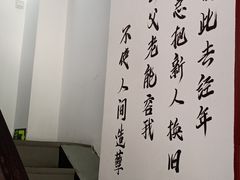 此去经年
忍把新人换旧
父老能容我
不使人间造孽